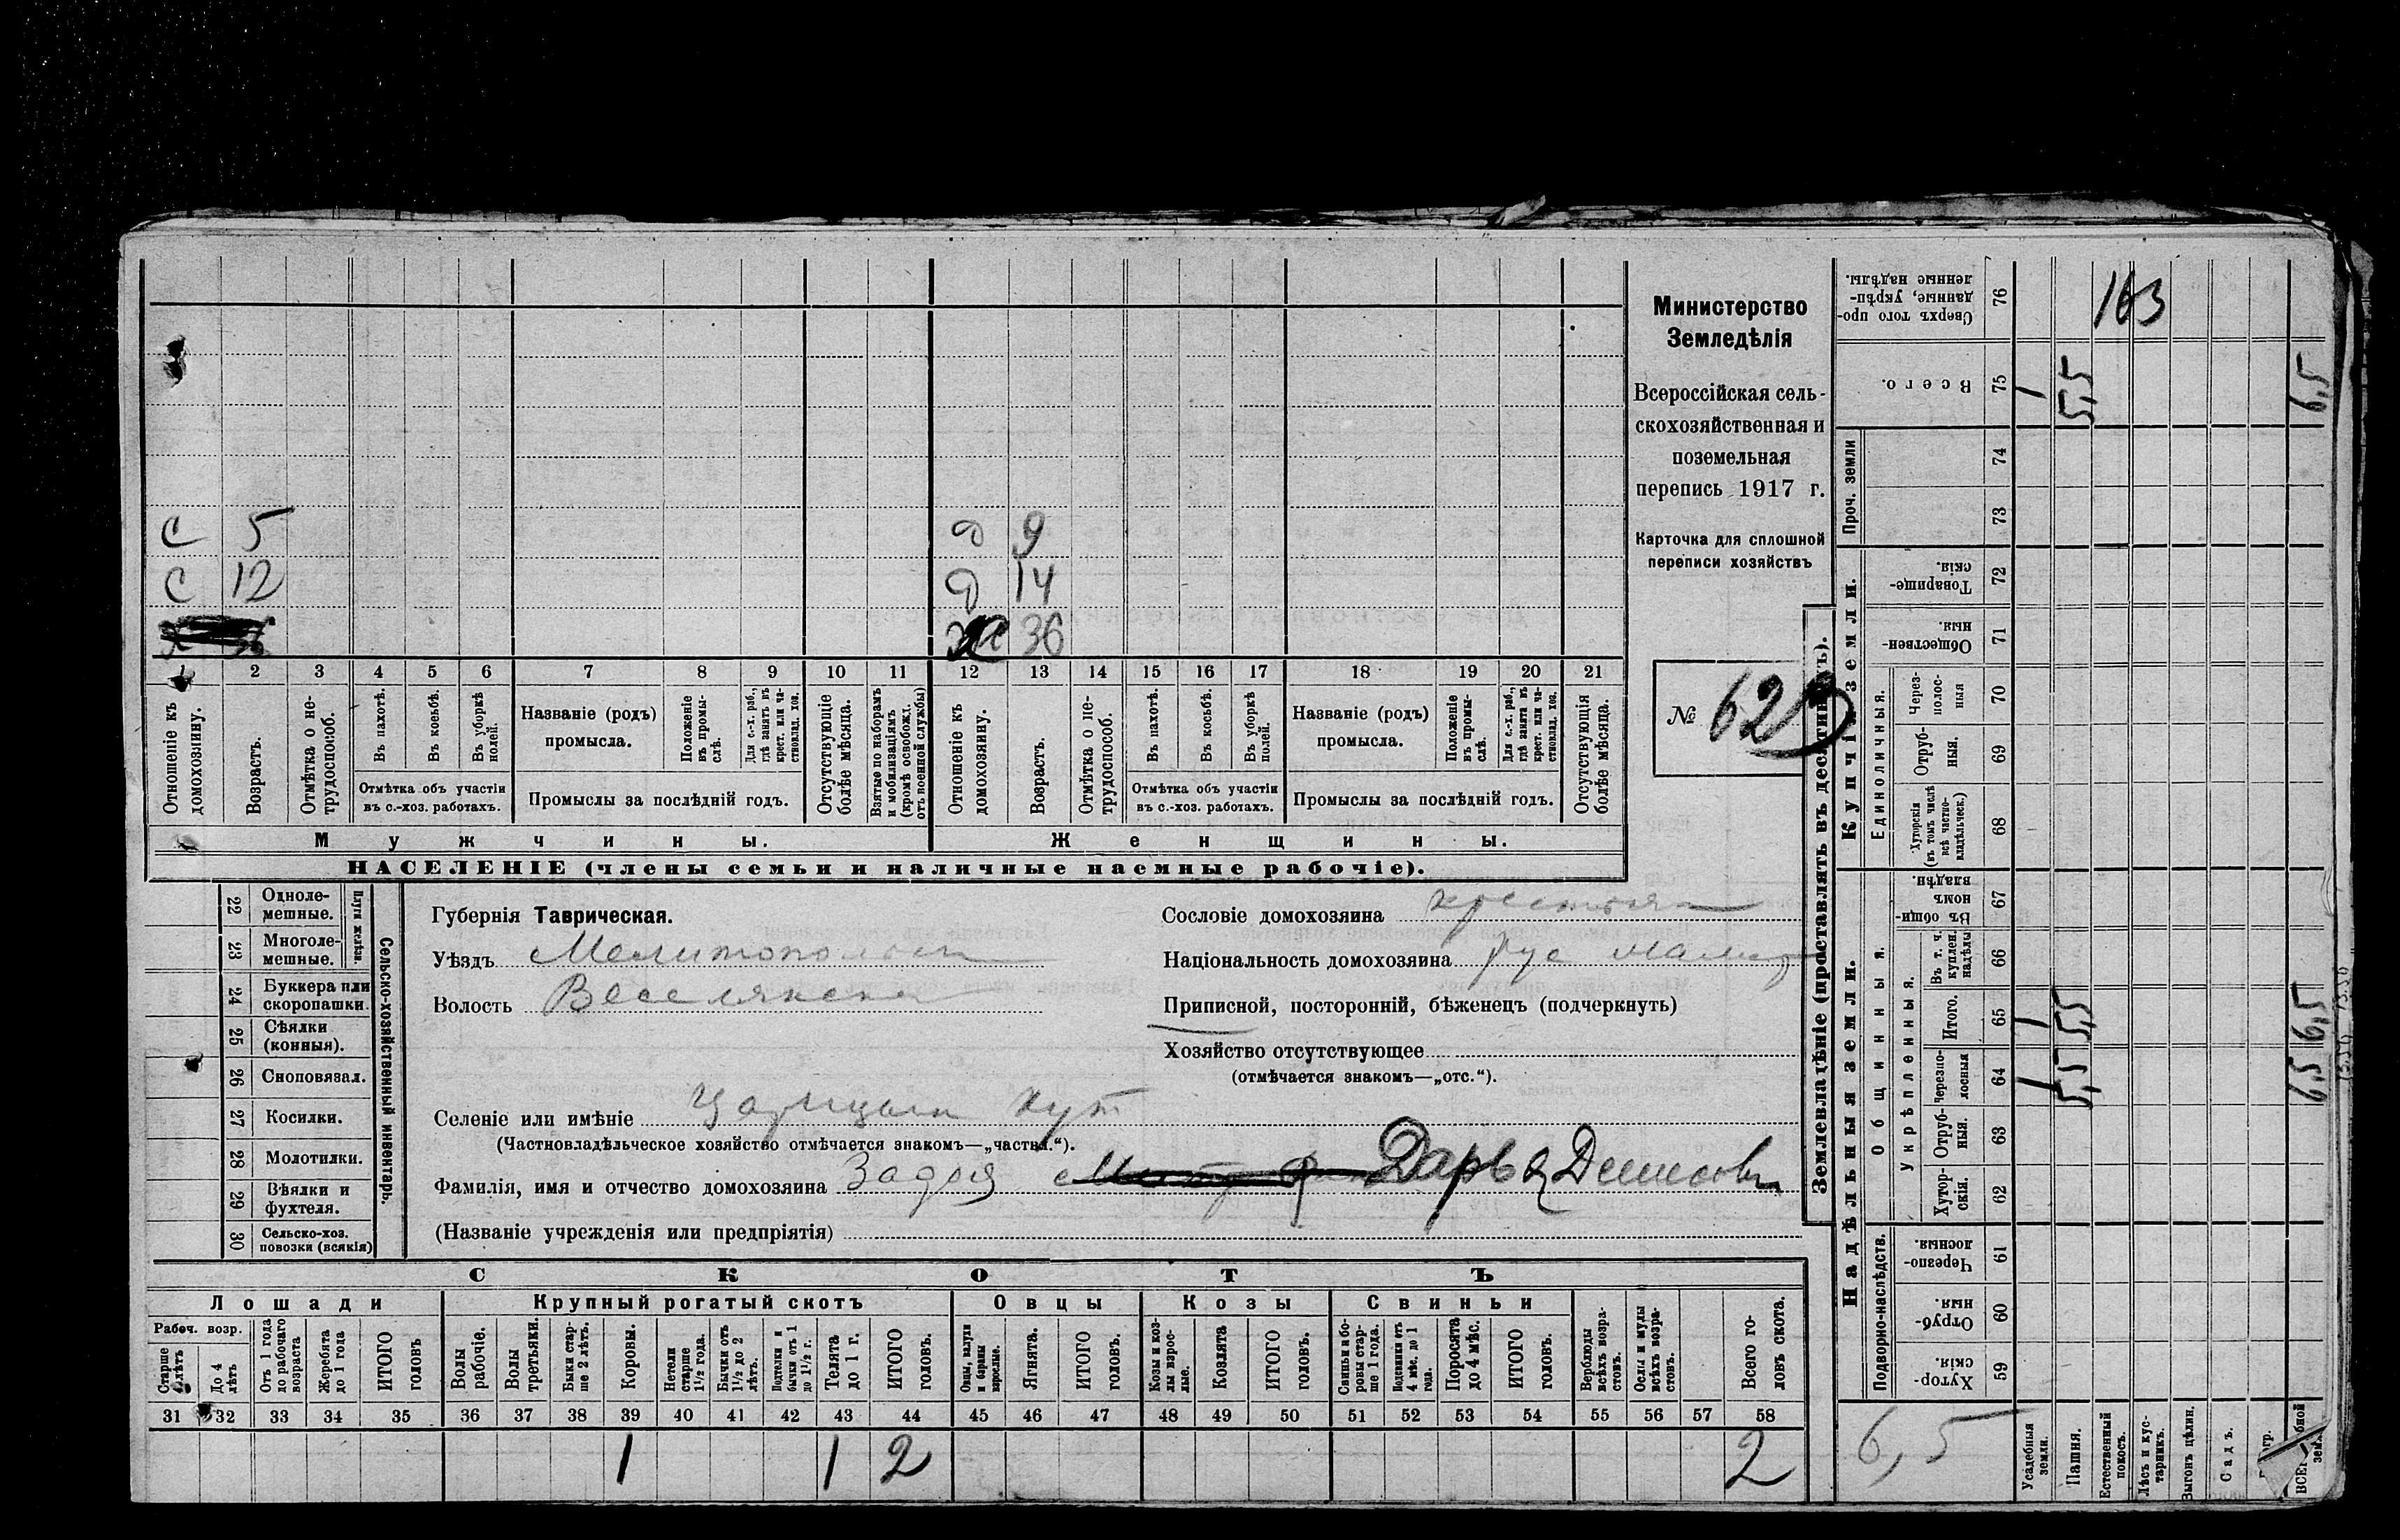 С 5 д 9
С 12 д 14
36
1 2 3 4 5 6 7 8 9 10 11 12 13 14 15 16 17 18 19 20 21
Отношеніе къ домохозяину.
Возрастъ.
Отмѣтка о не-трудоспособ.
Въ пахотѣ.
Въ косьбѣ.
Въ уборкѣ полей.
Отмѣтка объ участіи
въ с.-хоз. работахъ.
Названіе (родъ)
промысла.
Положеніе въ промы-слѣ.
Для с.-х. раб., гдѣ занятъ въ крест. или ча-стновлад. хоз.
Промыслы за послѣдній годъ.
Отсутствующіе болѣе мѣсяца.
Взятые по наборамъ и мобилизаціямъ (кромѣ освобожд. отъ военной службы)
Отношеніе къ домохозяину.
Возрастъ.
Отмѣтка о не-трудоспособ.
Въ пахотѣ.
Въ косьбѣ.
Въ уборкѣ полей.
Отмѣтка объ участіи
въ с.-хоз. работахъ.
Названіе (родъ)
промысла.
Положеніе въ промы-слѣ.
Для с.-х. раб., гдѣ занята въ крест. или ча-стновлад. хоз.
Промыслы за послѣдній годъ.
Отсутствующія болѣе мѣсяца.
Мужчины. Женщины.
НАСЕЛЕНІЕ (члены семьи и наличные наемные рабочіе).
Министерство
Земледѣлія
Всероссійская сель-
скохозяйственная и
поземельная
перепись 1917 г.
Карточка для сплошной
переписи хозяйствъ
№ 623
22 Одноле-мешные.
23 Многоле-мешные.
Плуги желѣзн.
24 Буккера или скоропашки.
25 Сѣялки (конныя).
26 Сноповязал.
27 Косилки.
28 Молотилки.
29 Вѣялки и фухтеля.
30 Сельско-хоз. повозки (всякія)
Сельско-хозяйственный инвентарь.
Губернія Таврическая.
Уѣздъ
Волость
Сословіе домохозяина
Національность домохозяина рус
Приписной, посторонній, бѣженецъ (подчеркнуть)
Хозяйство отсутствующее
(отмѣчается знакомъ—„отс.“).
Селеніе или имѣніе Царицын хут
(Частновладѣльческое хозяйство отмѣчается знакомъ—„частн.“).
Фамилія, имя и отчество домохозяина Задоя Дарья Денисовн
(Названіе учрежденія или предпріятія)
СКОТЪ
Лошади Крупный рогатый скотъ Овцы Козы Свиньи
Рабоч. возр.
Старше 4 лѣтъ
До 4 лѣтъ
Отъ 1 года до рабочаго возраста
Жеребята до 1 года
ИТОГО головъ
Волы рабочіе.
Волы третьяки.
Быки стар-ше 2 лѣтъ.
Коровы.
Нетели старше 1½ года.
Бычки отъ 1½ до 2 лѣтъ.
Подтелки и бычки отъ 1 до 1½ г.
Телята до 1 г.
ИТОГО головъ.
Овцы, валухи и бараны взрослые.
Ягнята.
ИТОГО головъ.
Козы и коз-лы взрос-лые.
Козлята
ИТОГО головъ.
Свиньи и бо-ровы стар-ше 1 года.
Подсвинки отъ 4 мѣс. до 1 года.
Поросята до 4 мѣс.
ИТОГО головъ.
Верблюды всѣхъ возра-стовъ.
Ослы и мулы всѣхъ возра-стовъ.
Всего го-ловъ скота.
31 32 33 34 35 36 37 38 39 40 41 42 43 44 45 46 47 48 49 50 51 52 53 54 55 56 57 58
1 1 2 2
Землевладѣніе (проставлять въ десятинахъ).
Сверхъ того про-данные, укрѣп-ленные надѣлы. 76 163
Всего. 75 1 5,5 6,5
Проч. земли 74 73
Купчія земли.
Товарище-скія. 72
Обществен-ныя. 71
Единоличныя.
Через-полос-ныя 70
Отруб-ныя. 69
Хуторскія (въ томъ числѣ всѣ частно-владѣльческ.) 68
Надѣльныя земли.
Общинныя.
Въ общин-номъ владѣн. 67
Укрѣпленныя.
Въ т. ч. куплен. надѣлы 66
Итого. 65 1 5,5 6,5
Черезпо-лосныя 64 1 5,5 6,5
Отруб-ныя. 63
Хутор-скія. 62
Подворно-наслѣдств.
Черезпо-лосныя. 61
Отруб-ныя. 60
Хутор-скія. 59
6,5
Усадебныя земли.
Пашня.
Естественный покосъ.
Лѣсъ и кус-тарникъ.
Выгонъ цѣлин.
Садъ.